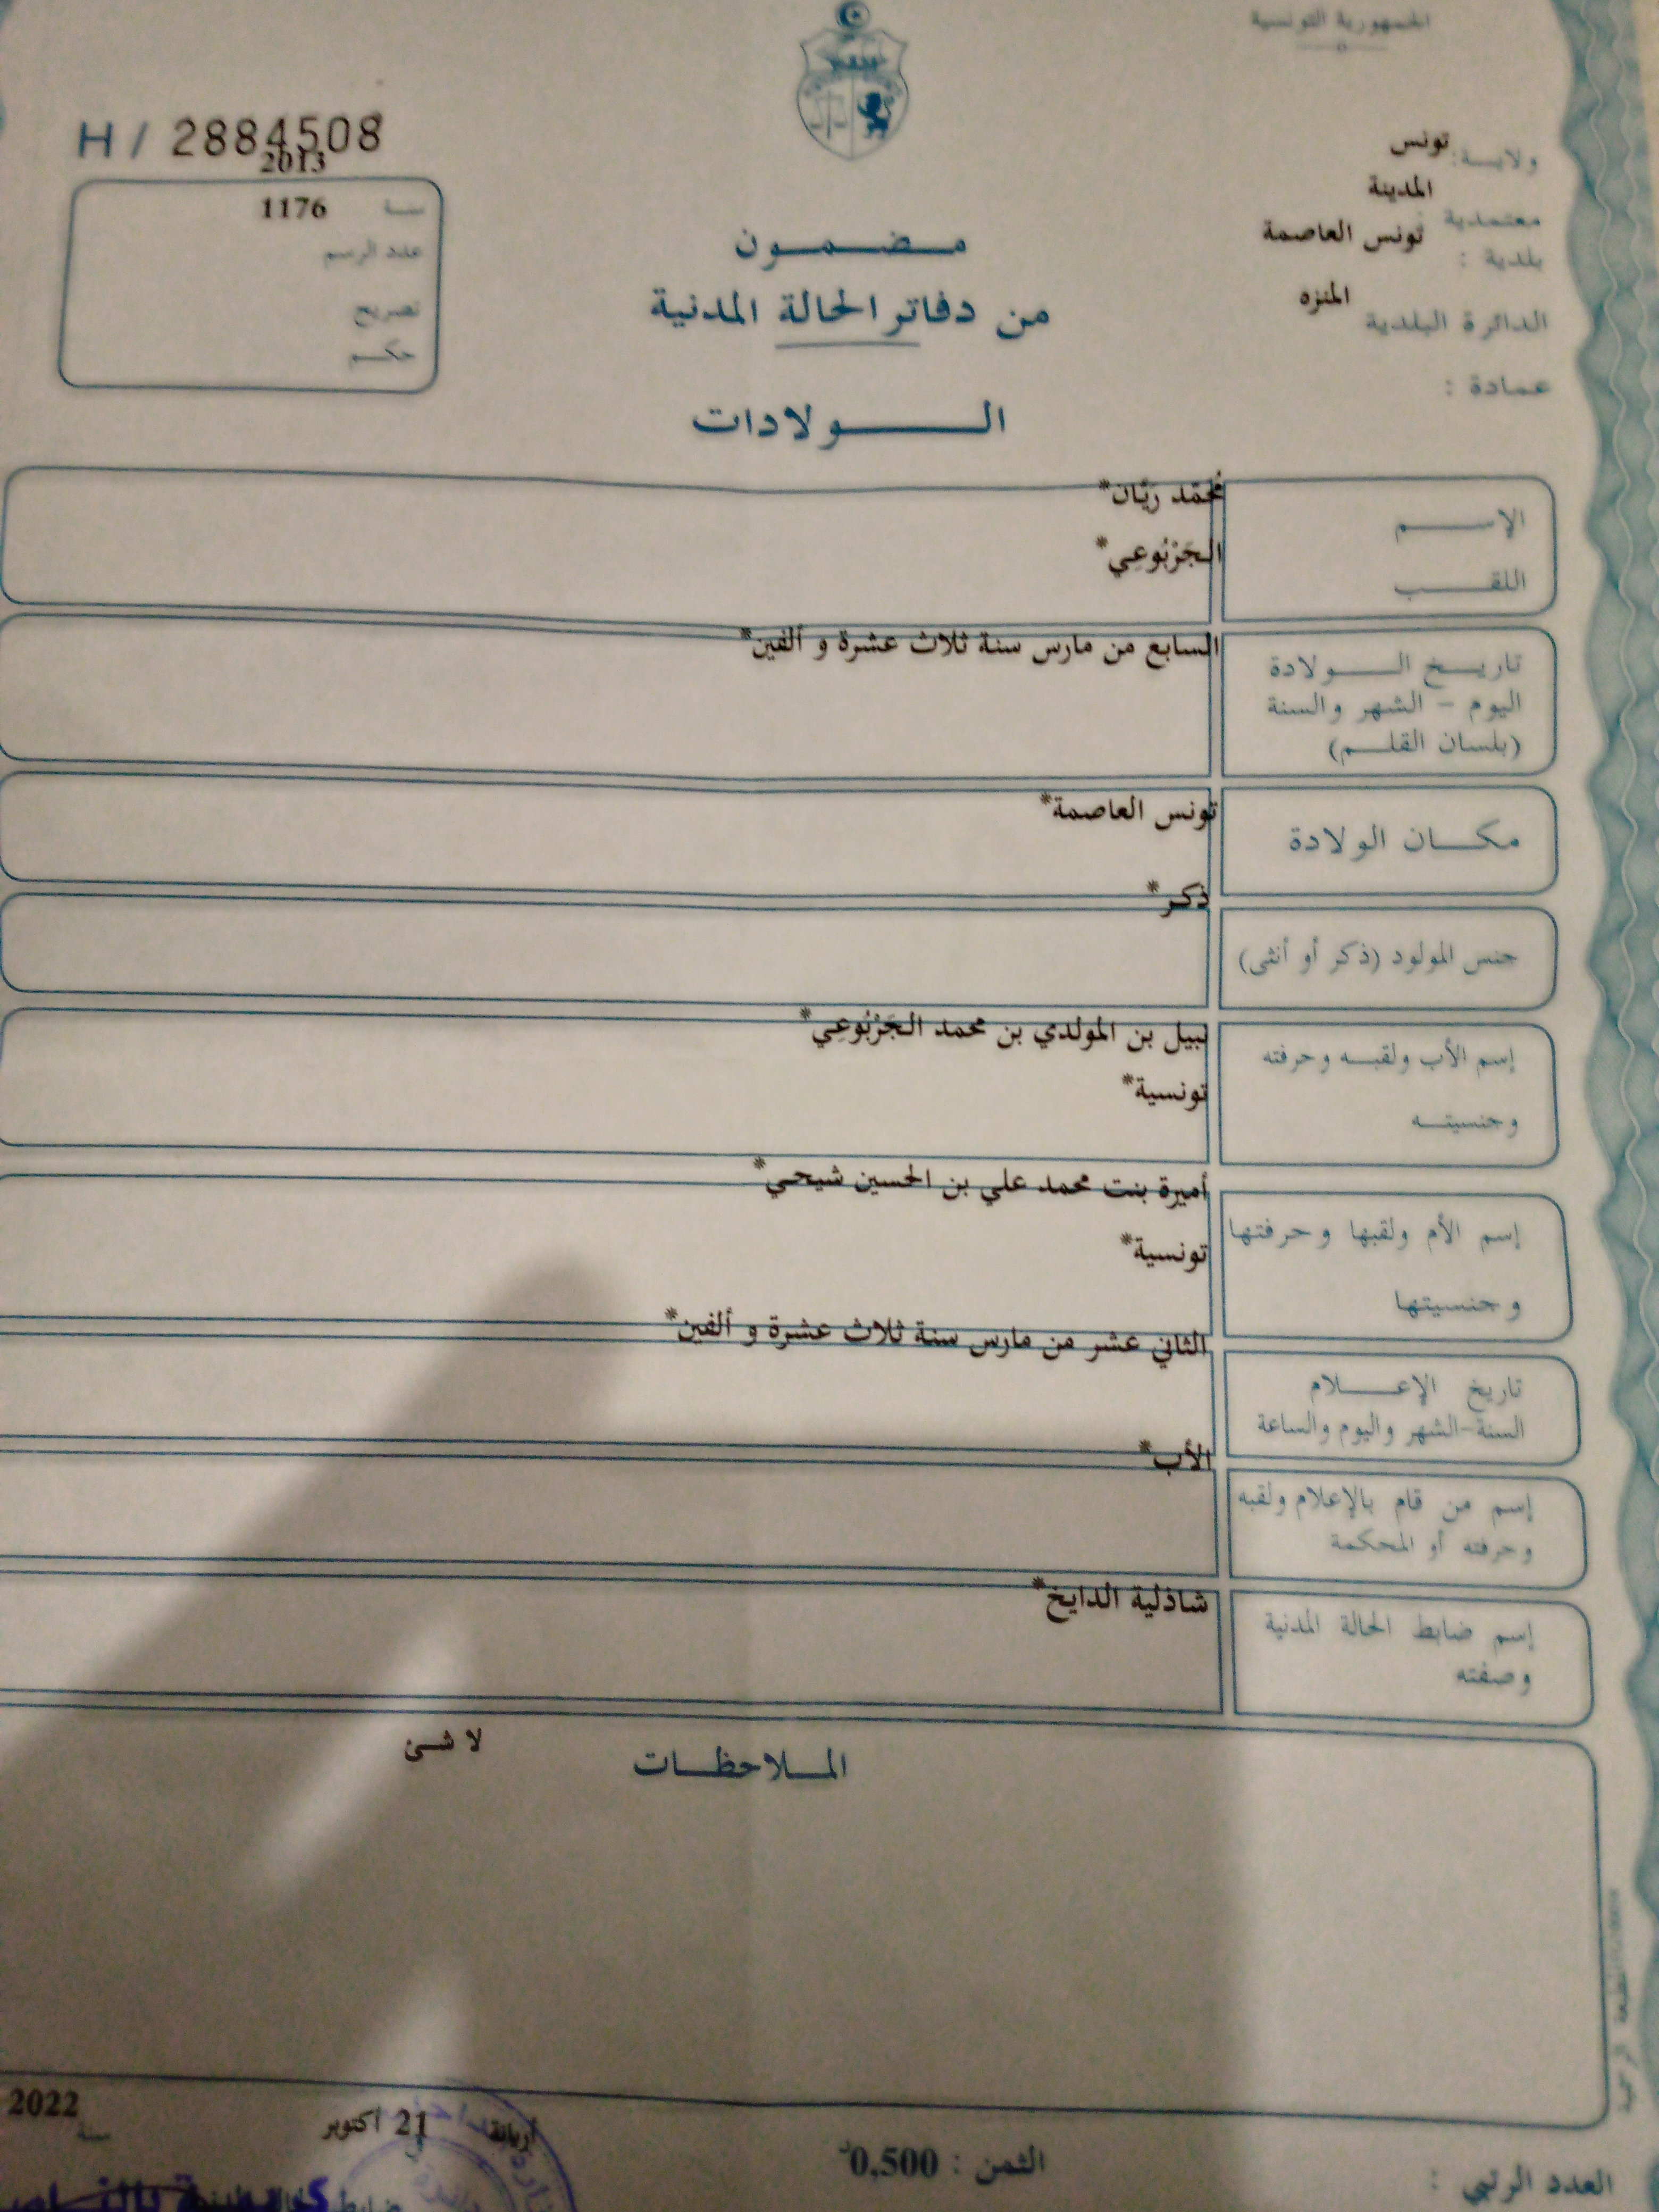 الجمهورية التونسية
H / 2884508
ولايــة: تونس
معتمدية المدينة
بلدية : تونس العاصمة
الدائرة البلدية المنزه
عمادة :
2013
سنة 1176
عدد الرسم
تصريح
حكم
مضمون
من دفاتر الحالة المدنية
الولادات
الاسم محمّد ريّان*
اللقب الجَرْبُوعِي*
تاريخ الولادة السابع من مارس سنة ثلاث عشرة و ألفين*
اليوم - الشهر والسنة
(بلسان القلم)
مكان الولادة تونس العاصمة*
جنس المولود (ذكر أو أنثى) ذكر*
إسم الأب ولقبه وحرفته نبيل بن المولدي بن محمد الجَرْبُوعِي*
وجنسيته تونسية*
إسم الأم ولقبها وحرفتها أميرة بنت محمد علي بن الحسين شيحي*
وجنسيتها تونسية*
تاريخ الإعلام الثاني عشر من مارس سنة ثلاث عشرة و ألفين*
السنة-الشهر واليوم والساعة
إسم من قام بالإعلام ولقبه الأب*
وحرفته أو المحكمة
إسم ضابط الحالة المدنية شاذلية الدايخ*
وصفته
الملاحظات لا شئ
أريانة 21 أكتوبر سنة 2022
الثمن : 0,500د
العدد الرتبي :